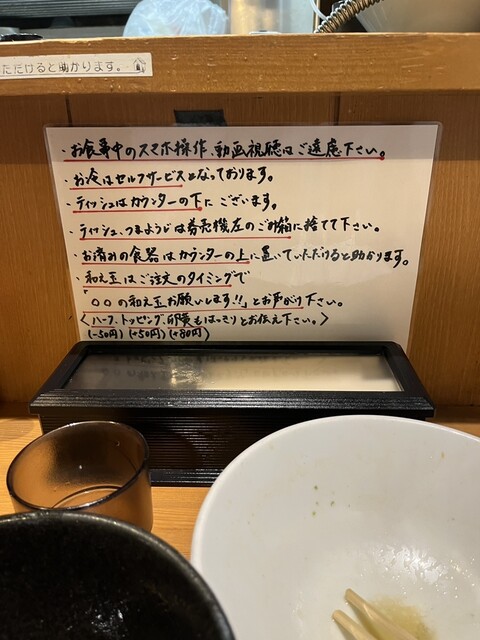 ただけると助かります。
・お食事中のスマホ操作、動画視聴はご遠慮下さい。
・お冷はセルフサービスとなっております。
・ティッシュはカウンターの下にございます。
・ティッシュ、つまようじは券売機左のごみ箱に捨てて下さい。
・お済みの食器はカウンターの上に置いていただけると助かります。
・和え玉はご注文のタイミングで
「〇〇の和え玉お願いします!!」とお声がけ下さい。
〈ハーフ、トッピング、卵黄もはっきりとお伝え下さい。〉
(-50円) (+50円) (+80円)